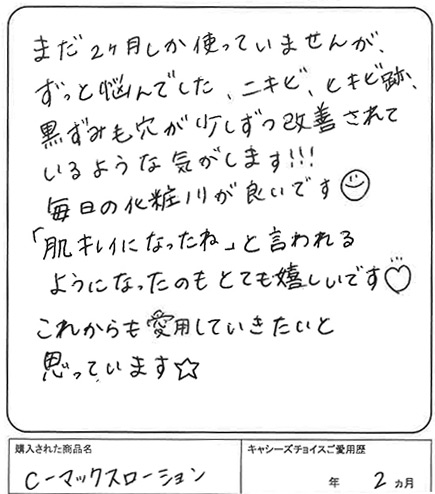 まだ2ヶ月しか使っていませんが、
ずっと悩んでした、ニキビ、ヒキビ跡、
黒ずみも穴が少しずつ改善されて
いるような気がします!!!
毎日の化粧ノリが良いです☺
「肌キレイになったね」と言われる
ようになったのもとても嬉しいです♡
これからも愛用していきたいと
思っています☆
購入された商品名
キャシーズチョイスご愛用歴
C-マックスローション
年 2 ヵ月